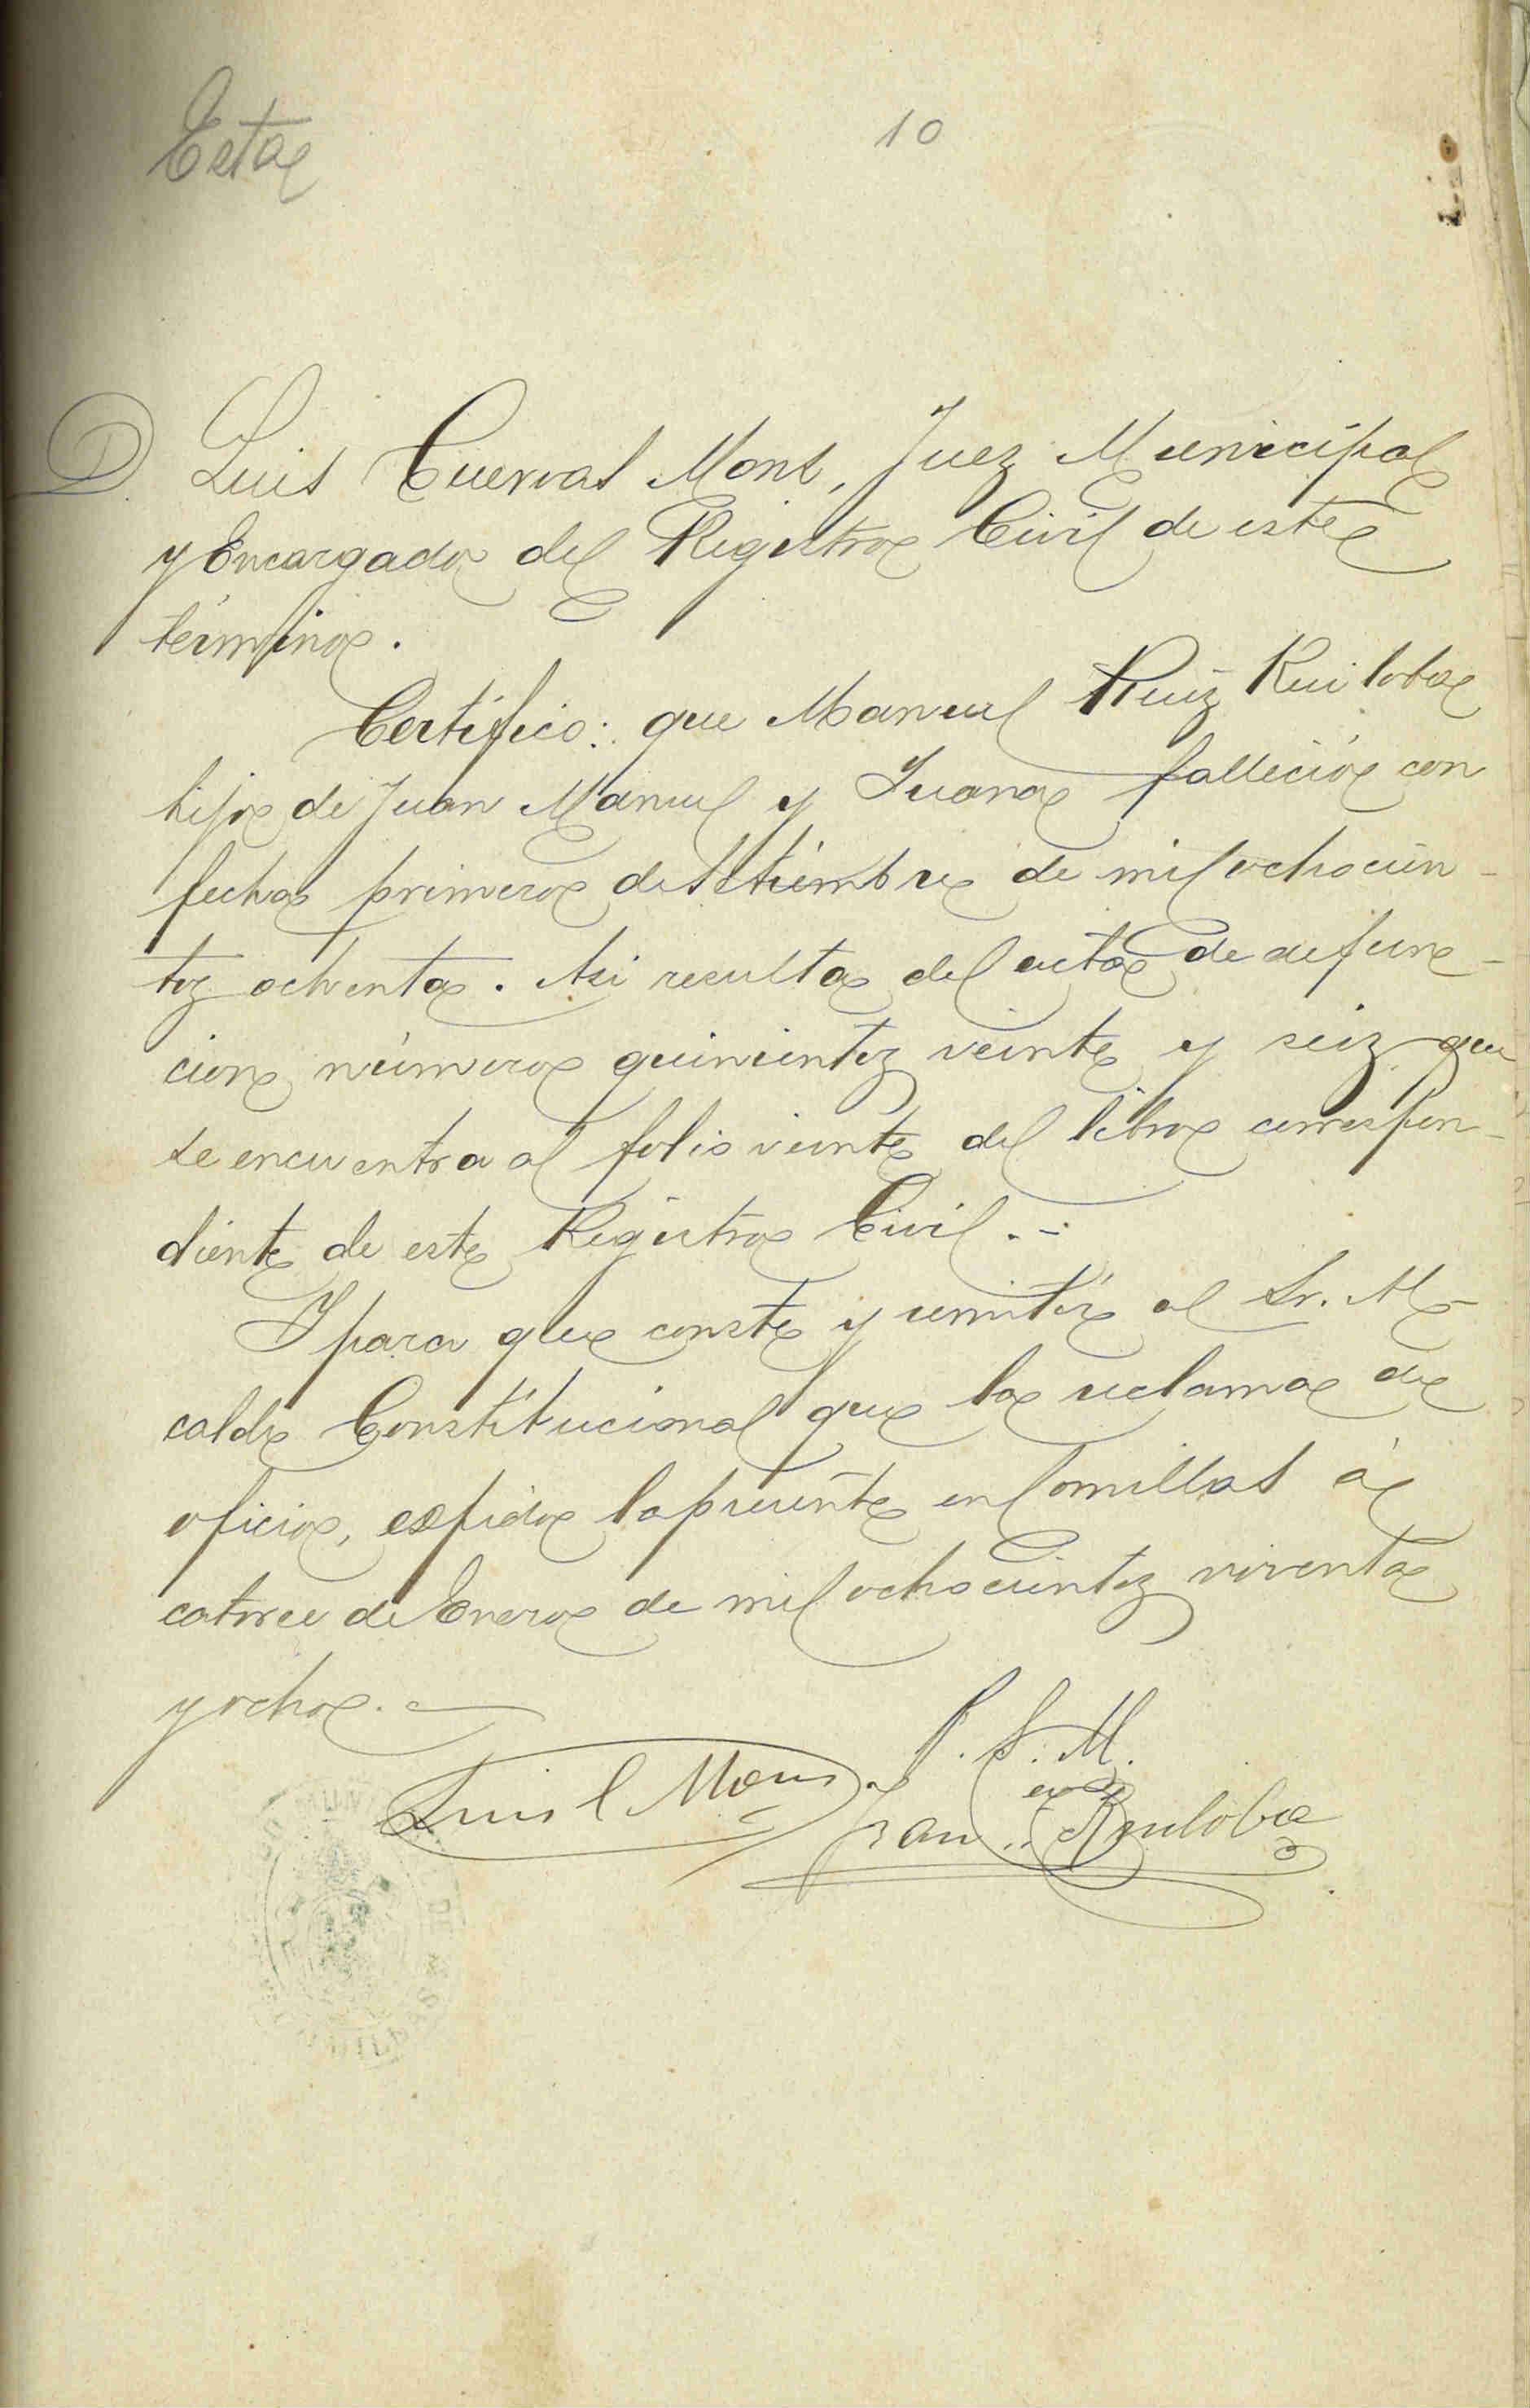 Esta
10
D. Luis Cuervas Mons, Juez Municipal
y Encargado del Registro Civil de este
término.
Certifico: que Manuel Ruiz Ruiloba
hijo de Juan Manuel y Juana falleció con
fecha primero de Setiembre de mil ochocien-
toz ochenta. Asi resulta del acta de defun-
cion número quinientoz veinte y seiz que
se encuentra al folio veinte del libro correspon-
diente de este Registro Civil.-
Y para que conste y remitir al Sr. Al-
calde Constitucional que la reclama de
oficio, expido la presente en Comillas á
catorce de Enero de mil ochocientoz noventa
y ocho.
P. S. M.
Luis C Mons
Franco Ruiloba